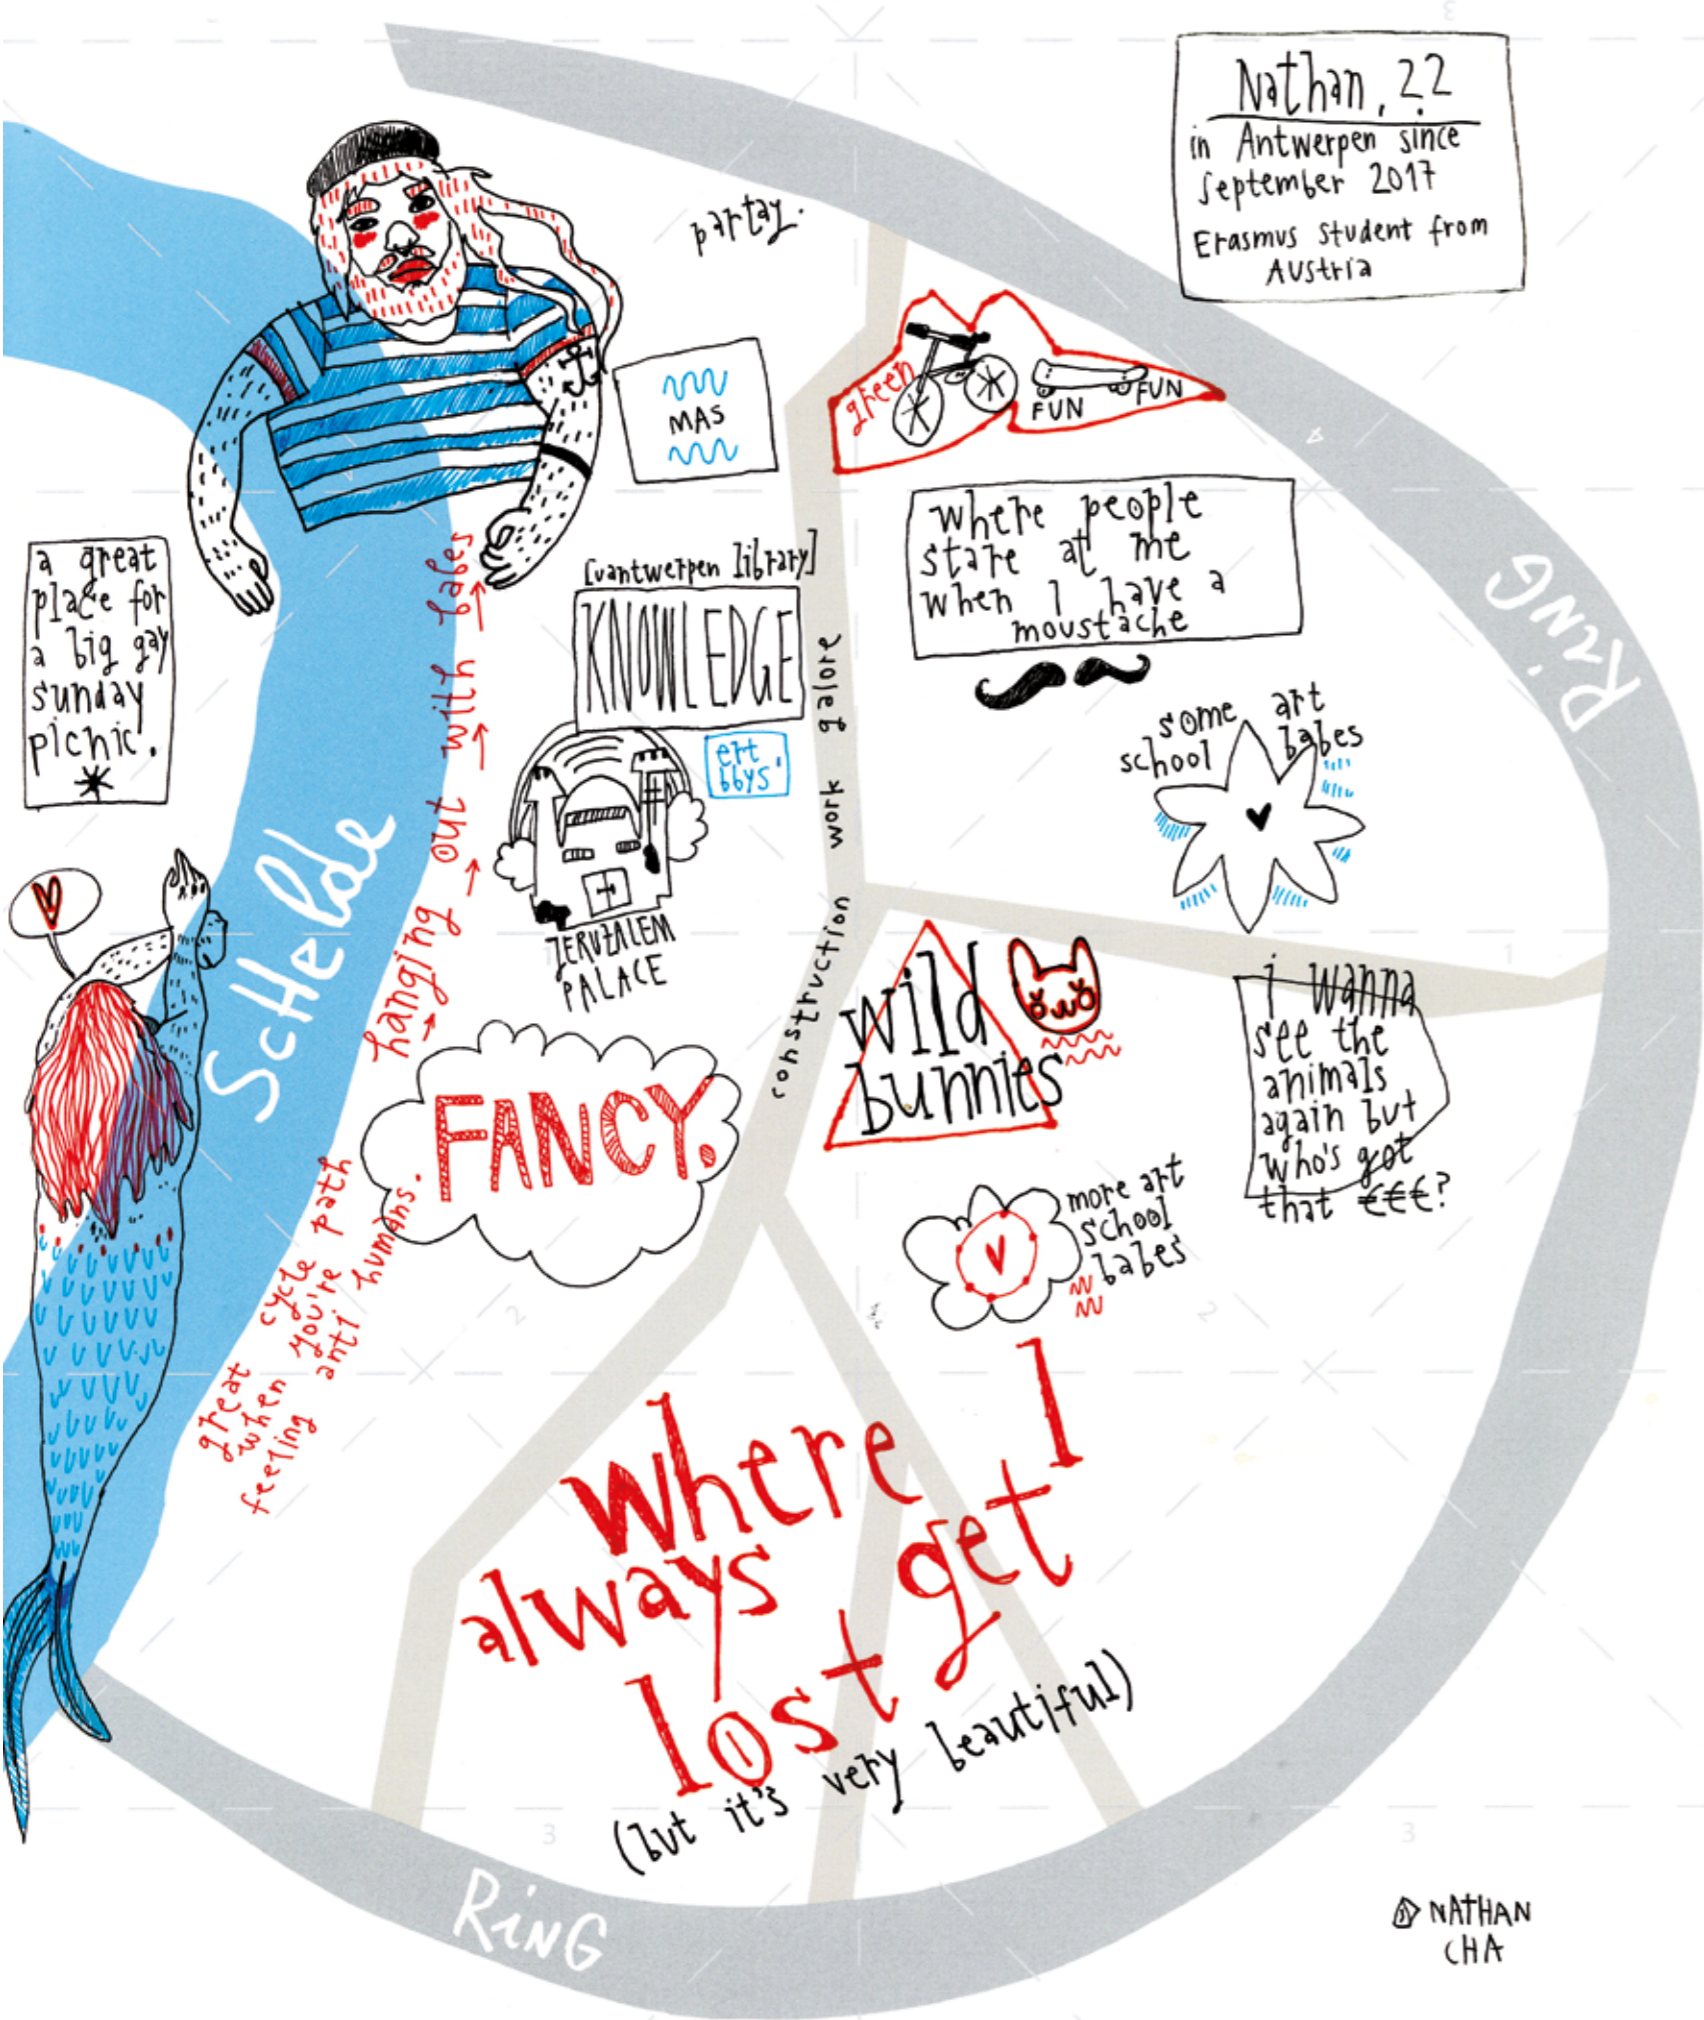 Nathan, 22
in Antwerpen since
September 2017
Erasmus student from
Austria
partay.
green
FUN
FUN
MAS
where people
stare at me
when I have a
moustache
RiNG
a great
place for
a big gay
sunday
picnic!
[uantwerpen library]
KNOWLEDGE
ert
bbys'
JERUZALEM
PALACE
hanging out with babes
construction work galore
some art
school babes
ScHelde
wild
bunnies
i wanna
see the
animals
again but
who's got
that €€€?
FANCY.
more art
school
babes
great cycle path
when you're
feeling anti humans.
where I
always get
lost
(but it's very beautiful)
RiNG
NATHAN
CHA
3
1
2
2
3
3